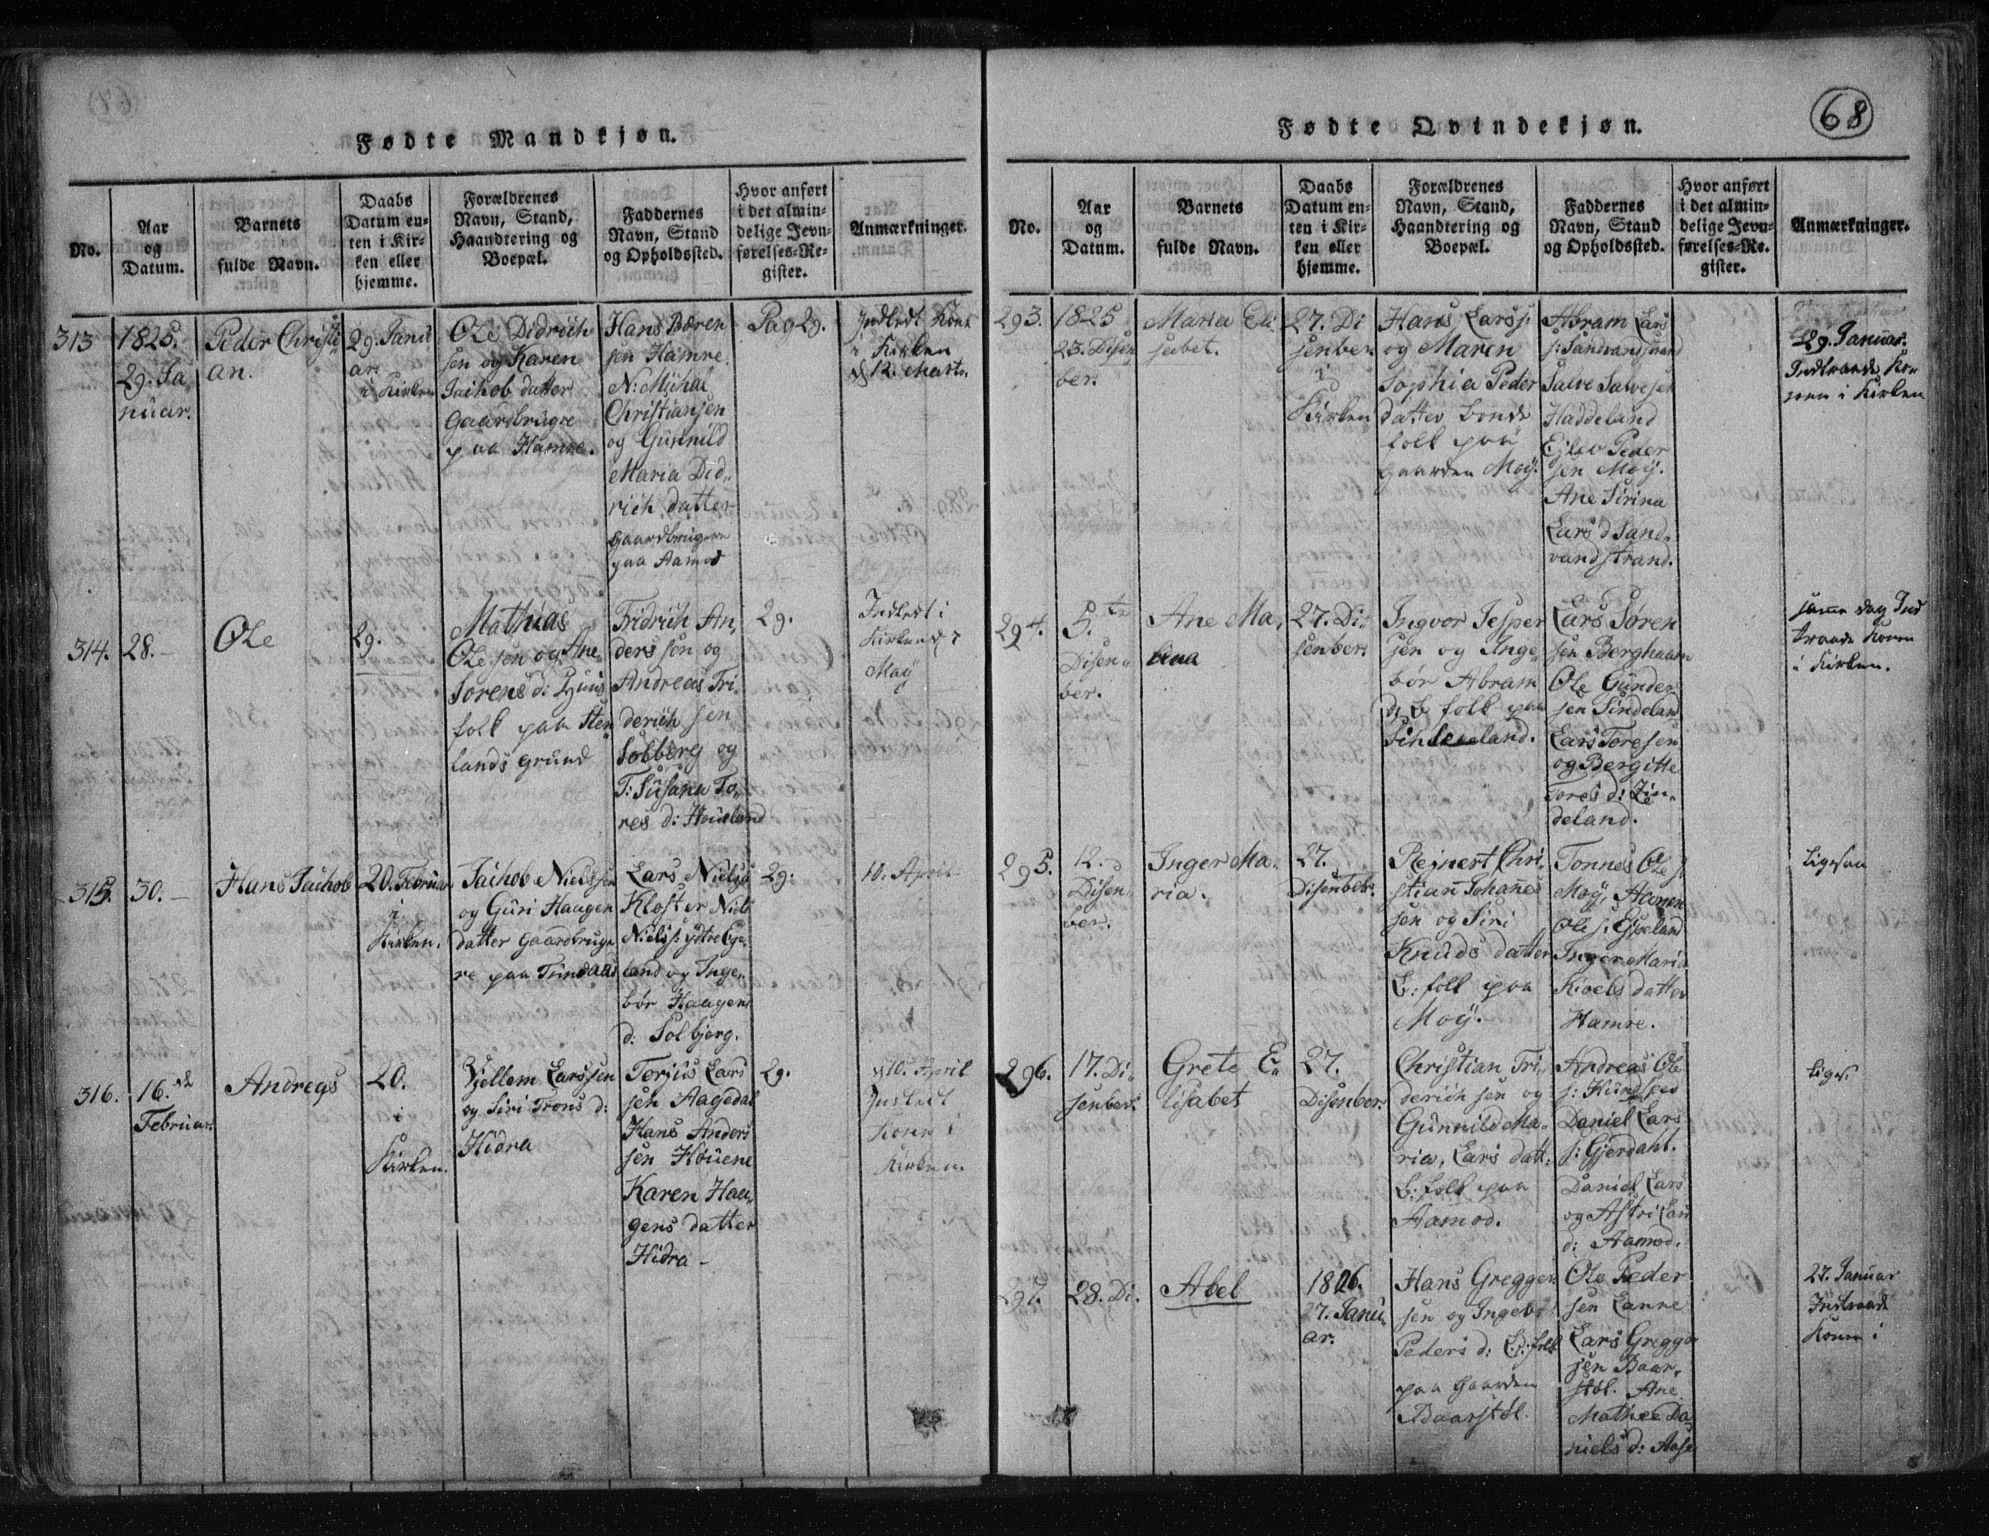 68
Fødte Mandkjøn.
No.
Aar
og
Datum.
Barnets
fulde Navn.
Daabs
Datum en-
ten i Kir-
ken eller
hjemme.
Forældrenes
Navn, Stand,
Haandtering og
Boepæl.
Faddernes
Navn, Stand
og Opholdssted.
Hvor anført
i det almin-
delige Jevn-
førelses-Re-
gister.
Anmærkninger.
313
1825.
29. Ja-
nuar.
Peder Christi-
an.
29. Janu
ar.
i Kirken
Ole Didrich
sen og Karen
Jachob datter
Gaardbrugre
paa Hamre.
Hans Bæren
sen Hamre.
N: Michal
Christiansen
og Gunnild
Maria Did-
rich datter
Gaardbrugere
paa Aamod
Pag 29.
Indledt Kone
i Kirken
d 12. Marts.
314.
28.
Ole
29.
Mathias
Olesen og Ane
Sorens d:
folk paa
lands grund
Fridrich An-
ders sen og
Andreas Fri-
derich sen
Solberg og
T: Susana To-
res d:
29.
Indledt i
Kirken d 7
May
315.
30.
Hans Jachob
20. Februar
i
Kirken.
Jachob Nielssen
og Guri Haagen
datter Gaardbruge
re paa
Lars Niels s:
Kloster Niels
Niels s: ydtre Ege-
land og Inge-
bør Haagen
d: Solbjerg.
29.
10. April
316.
16. de
Februar.
Andreas
20.
i
Kirken.
Vjellem Larssen
og Siri Trons d:
Hidra
Torjus Lars
sen Aagedal
Hans Anders
sen Houene
Karen Haa-
gens datter
Hidra
29.
d 10. April
Indledt
Kone i
Kirken.
Fødte Qvindekjøn.
No.
Aar
og
Datum.
Barnets
fulde Navn.
Daabs
Datum en-
ten i Kir-
ken eller
hjemme.
Forældrenes
Navn, Stand,
Haandtering og
Boepæl.
Faddernes
Navn, Stand
og Opholdssted.
Hvor anført
i det almin-
delige Jevn-
førelses-Re-
gister.
Anmærkninger.
293.
1825
23. Disem
ber.
Maria Eli
sabet.
27. Di
senber
i
Kirken
Hans Lars s:
og Maren
Sophia Peder
datter bonde
folk paa
Gaarden Moy.
Abram Lars
s: Sandvandstrand
Salve Salvesen
Haddeland
Ejlev Peder
sen Moy.
Ane Sirina
Lars d Sand-
vandstrand.
29. Januar.
Indtraade Ko-
nen i Kirken
294.
5. te
Disen-
ber.
Ane Ma-
27. Di-
senber.
Ingvor Jesper
sen og Inge-
bør Abram
d: B: folk paa
Lars Søren
sen
Ole Gunder
sen Sindeland
Lars Toresen
og Bergitte
Tores d: Zin-
deland.
samme dag Ind
traade Konen
i Kirken.
295.
12.
Disen-
ber.
Inger Ma-
ria.
27.
Disenber.
Rejnert Chri-
stian Johanes
sen og Siri
Knuds datter
B: folk paa
Moy.
Tonnes Ole s:
Moy, Aanen
Ole s:
Inger Maria
datter
Hamre.
Ligesaa
296.
17. Di-
senber.
Grete E-
lisabet
27.
Disenber.
Christian Fri-
derich sen og
Gunnild Ma-
ria, Lars datt:
B: folk paa
Aamod.
Andreas Ole
s:
Daniel Lars
s: Gjerdahl.
Daniel Lars
og Astri Lars
d: Aamod.
Liges.
297.
28. Di.
Abel
1826.
27. Janu-
ar.
Hans Gregger
sen og Ingeb
Peders d: B: folk
paa Gaarden
Baarstøl.
Ole Peder
sen Lanne
Lars Gregger
sen Baar-
støl. Ane
Mathea Da-
niels d: Aase
27. Januar
Indtraade
Konen i